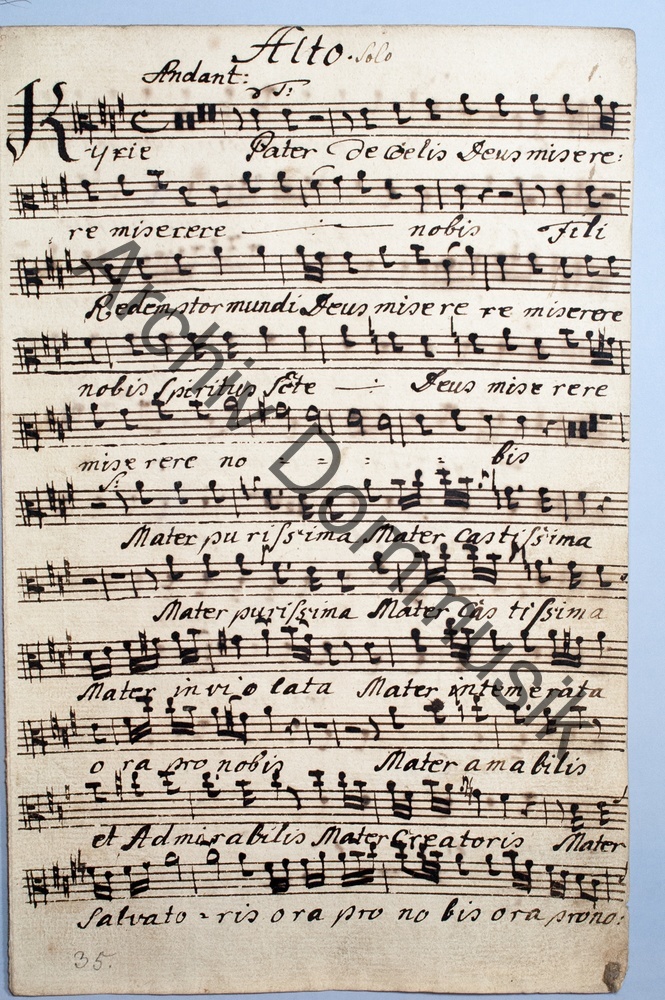 Alto. Solo
1.
Andant:
S:
Kyrie Pater de Coelis Deus misere:
re miserere nobis Fili
Redemptor mundi Deus misere re miserere
nobis Spiritus Scte Deus mise rere
mise rere no = = = = bis
S:
Mater pu rissima Mater Castissima
Mater purissima Mater Cas tissima
Mater in vi o lata Mater intemerata
o ra pro nobis Mater amabilis
et Admirabilis Mater Creatoris Mater
Salvato = ris o ra pro no bis ora prono:
35.
Archiv Dommusik